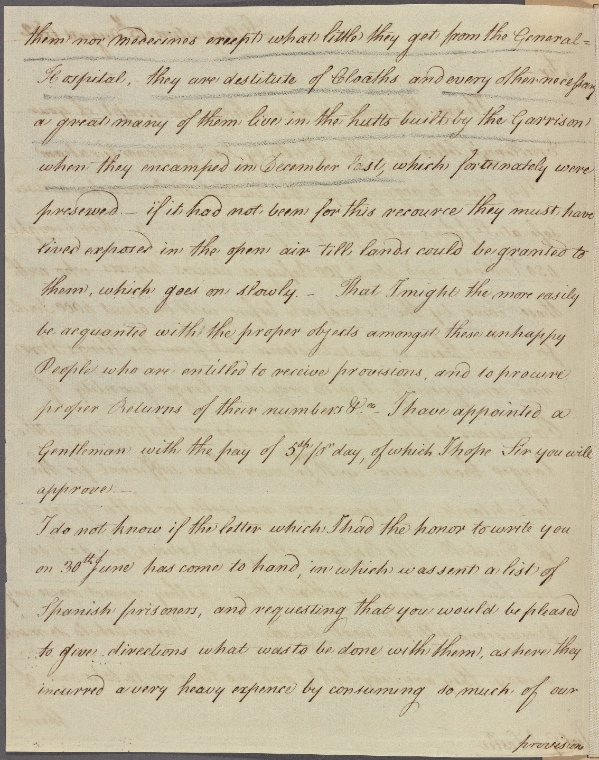 them nor medecines except what little they get from the General=
Hospital, they are destitute of Cloaths and every other necessary
a great many of them live in the hutts built by the Garrison
when they encamped in December last, which fortunately were
preserved — if it had not been for this recource they must have
lived exposed in the open air till lands could be granted to
them, which goes on slowly. — That I might the more easily
be acquanted with the proper objects amongst these unhappy
People who are entitled to receive provisions, and to procure
proper Returns of their numbers &ca. I have appointed a
Gentleman with the pay of 5sh pr day, of which I hope Sir you will
approve —
I do not know if the letter which I had the honor to write you
on 30th June has come to hand, in which was sent a list of
Spanish prisoners, and requesting that you would be pleased
to give directions what was to be done with them, as here they
incurred a very heavy expence by consuming so much of our
provision